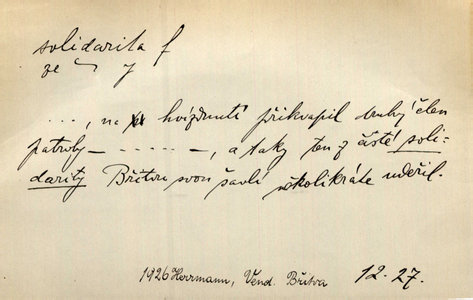 solidarita f
ze ~ y
..., na hvízdnutí přikvapil druhý člen
patroly – – – – – –, a taky ten z čisté soli-
darity Břitvu svou šavlí několikráte udeřil.
1926 Herrmann, Vend. Břitva 12.27.